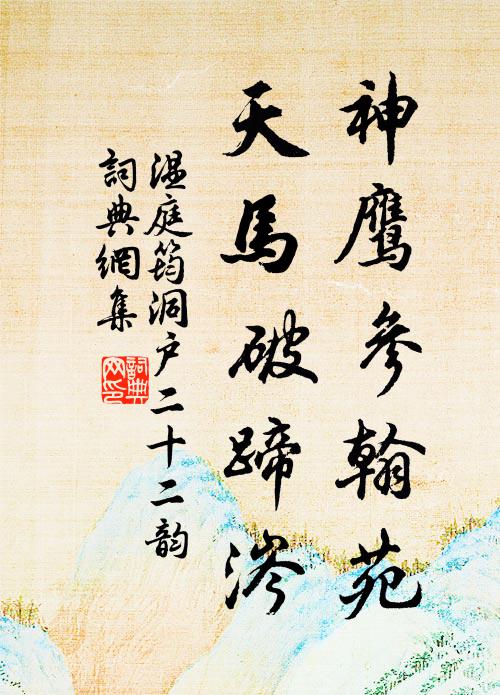 神鷹參翰苑
天馬破蹄涔
溫庭筠洞户二十二韵
詞典網集
詞典
网印